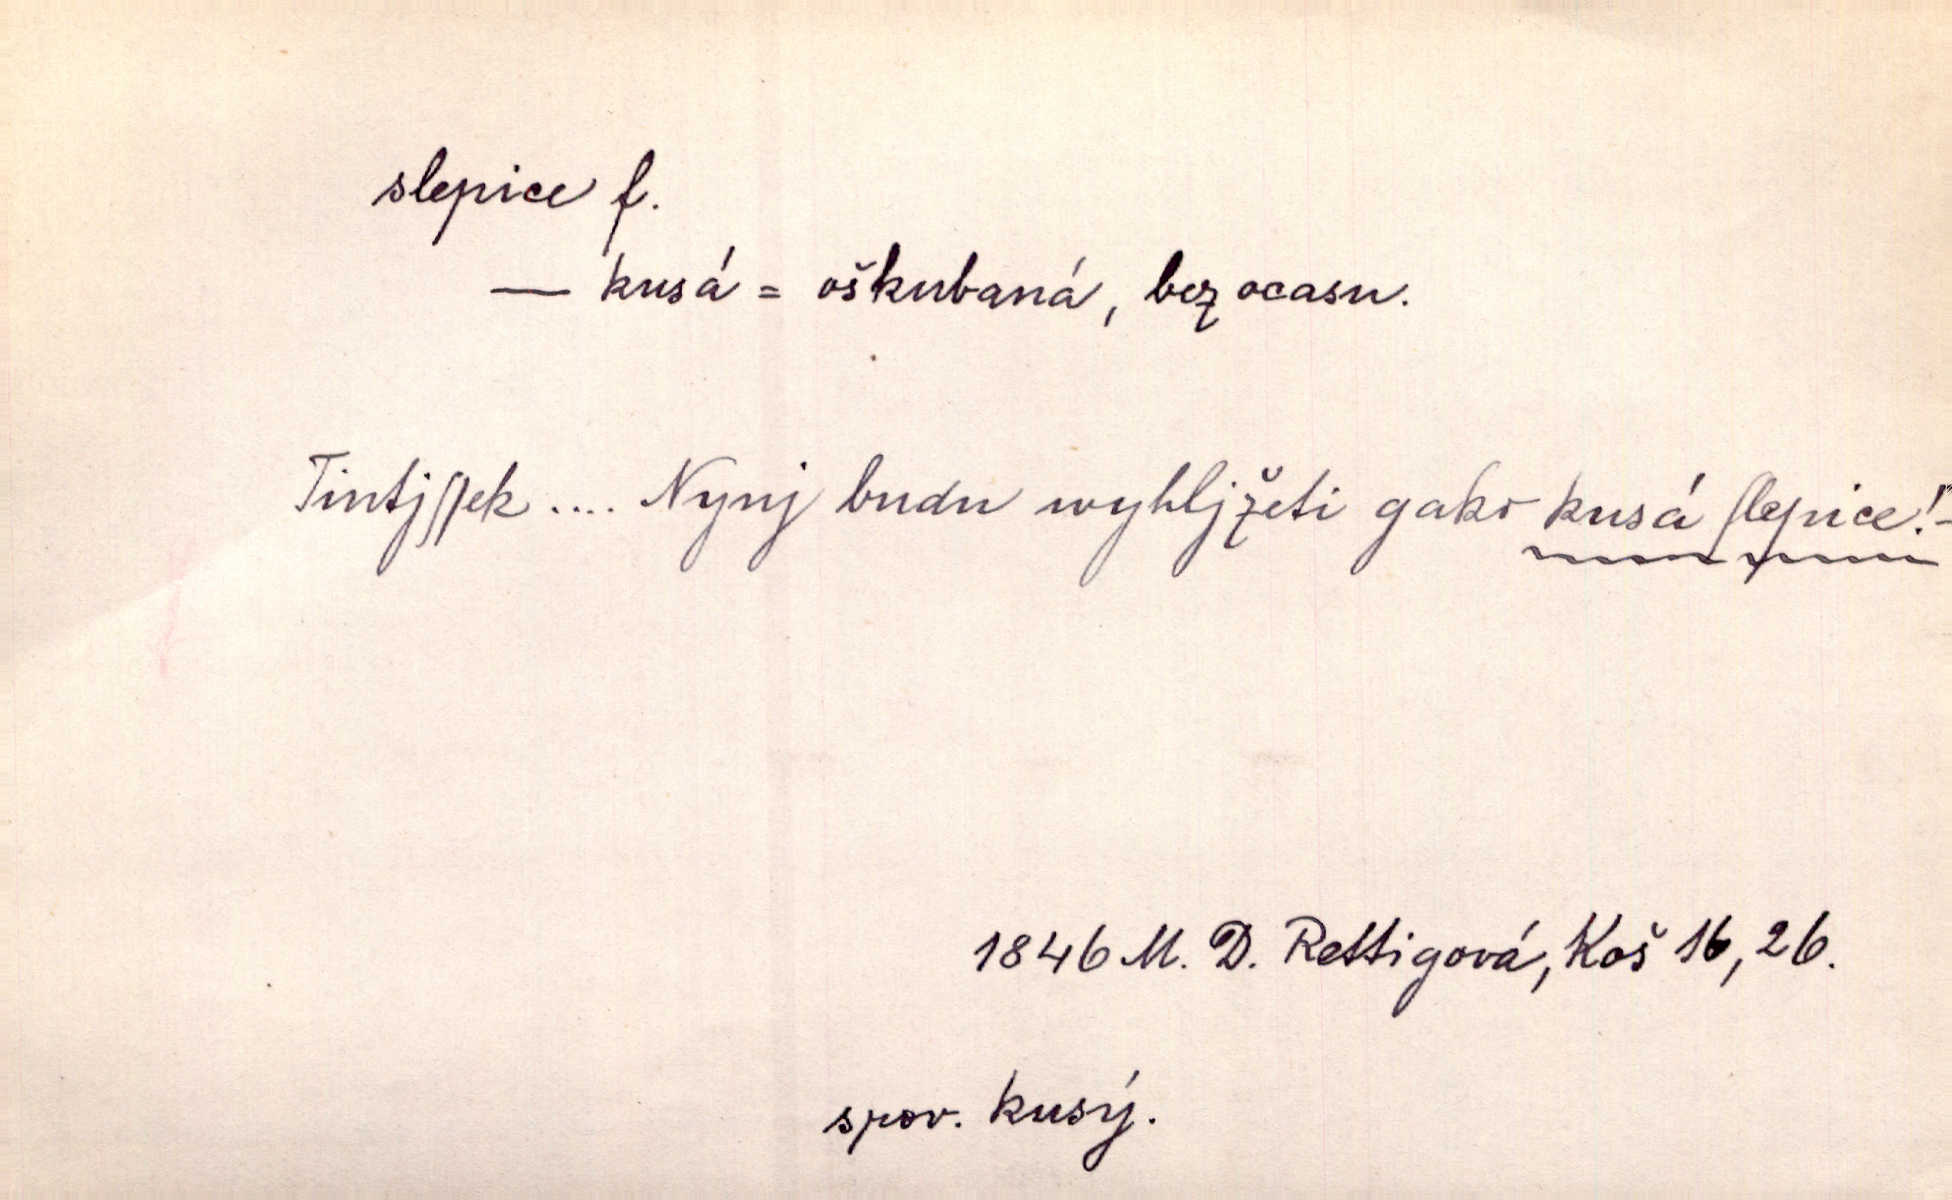 slepice f.
— kusá = oškubaná, bez ocasu.
Tintjſſek .... Nynj budu wyhljžeti gako kusá ſlepice!"-
1846 M. D. Rettigová, Koš 16, 26.
srov. kusý.